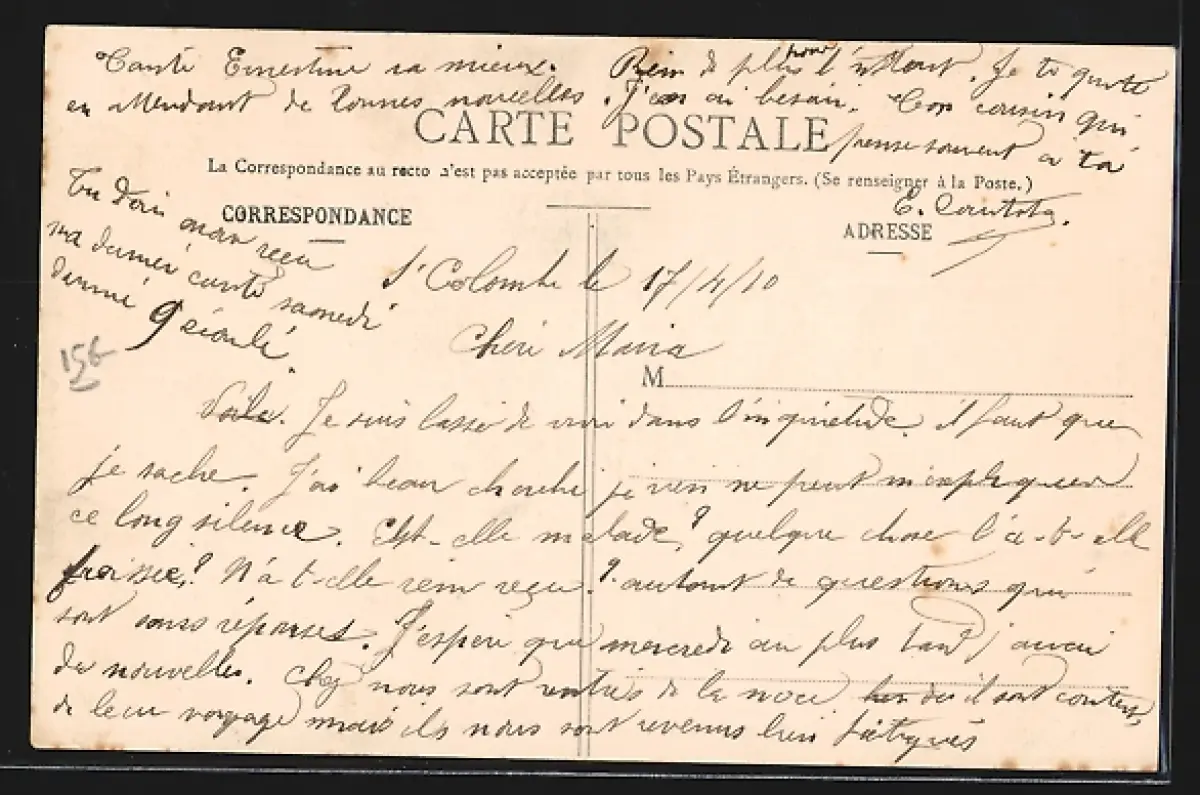 Tante Ernestine va mieux. Rien de plus pour l'instant. Je te quitte
en attendant de bonnes nouvelles. J'en ai besoin. Ton cousin qui
pense souvent à toi
CARTE POSTALE
La Correspondance au recto n'est pas acceptée par tous les Pays Étrangers. (Se renseigner à la Poste.)
E.
CORRESPONDANCE
ADRESSE
Tu dois avoir reçu
ma derniere carte samedi
dernié
St Colombe le 17/4/10
Chèri Maria
M
Voila. Je suis lassé de vivre dans l'inquietude. il faut que
je sache. J'ai beau cherché je rien ne peut m'expliquer
ce long silence. Est-elle malade? quelque chose l'a-t-elle
froissée? N'a t-elle rein reçu? autant de questions qui
sont sans réponses. J'espère que mercredi au plus tard j'aurai
de nouvelles. Chez nous sont rentrés de la noce il sont contents
de leur voyage mais ils nous sont revenus bien fatigués